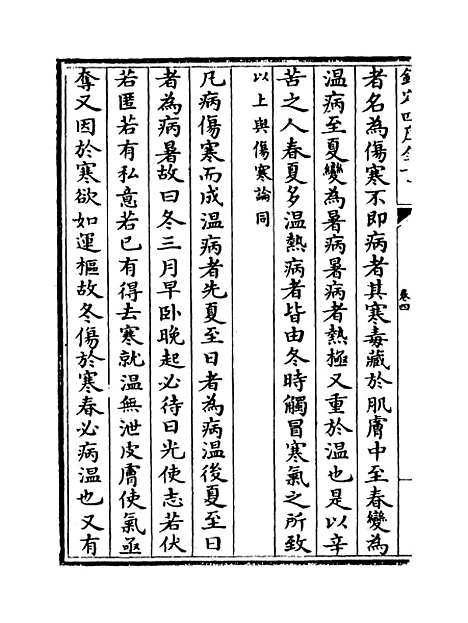 欽定四庫全書
卷四
者名為傷寒不即病者其寒毒藏於肌膚中至春變為
溫病至夏變為暑病暑病者熱極又重於溫也是以辛
苦之人春夏多溫熱病者皆由冬時觸冒寒氣之所致
以上與傷寒論同
凡病傷寒而成溫病者先夏至日者為病溫後夏至日
者為病暑故曰冬三月早卧晚起必待日光使志若伏
若匿若有私意若已有得去寒就溫無泄皮膚使氣亟
奪又因於寒欲如運樞故冬傷於寒春必病溫也又有